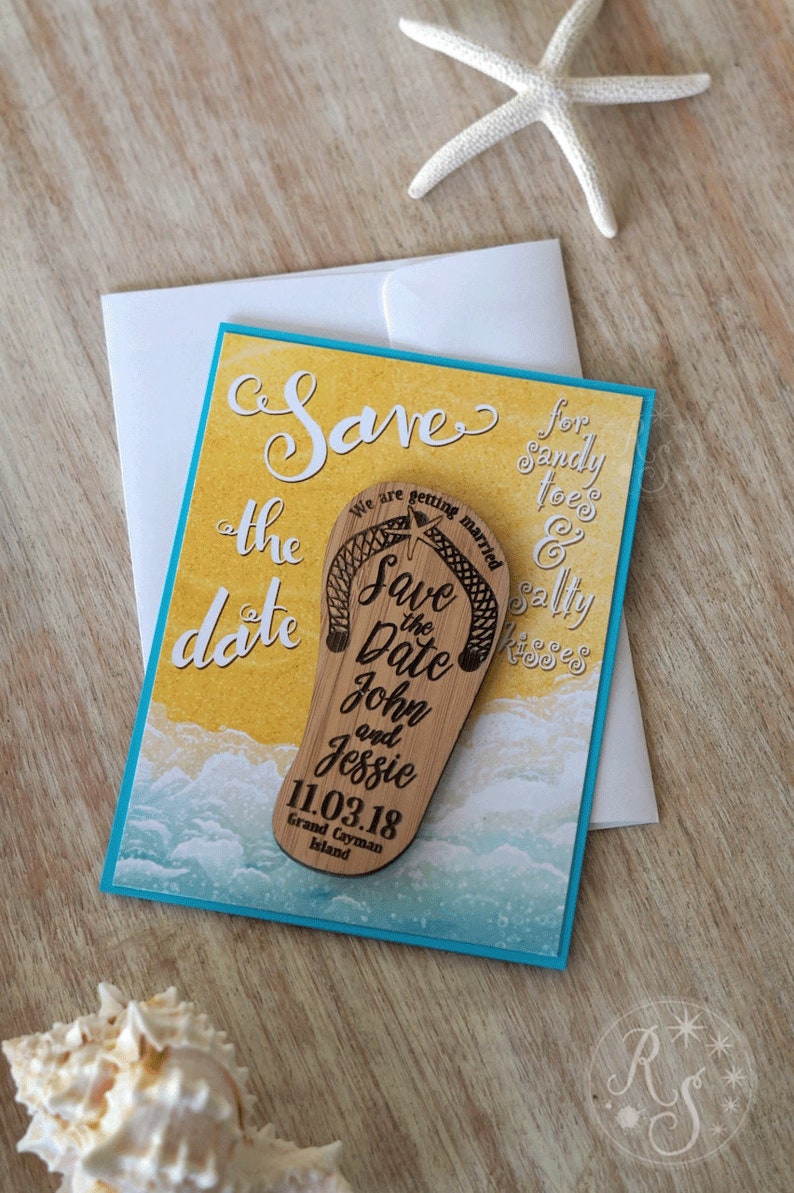 Save
the
date
for
sandy
toes
&
salty
kisses
We are getting married
Save
the
Date
John
and
Jessie
11.03.18
Grand Cayman
Island
RS